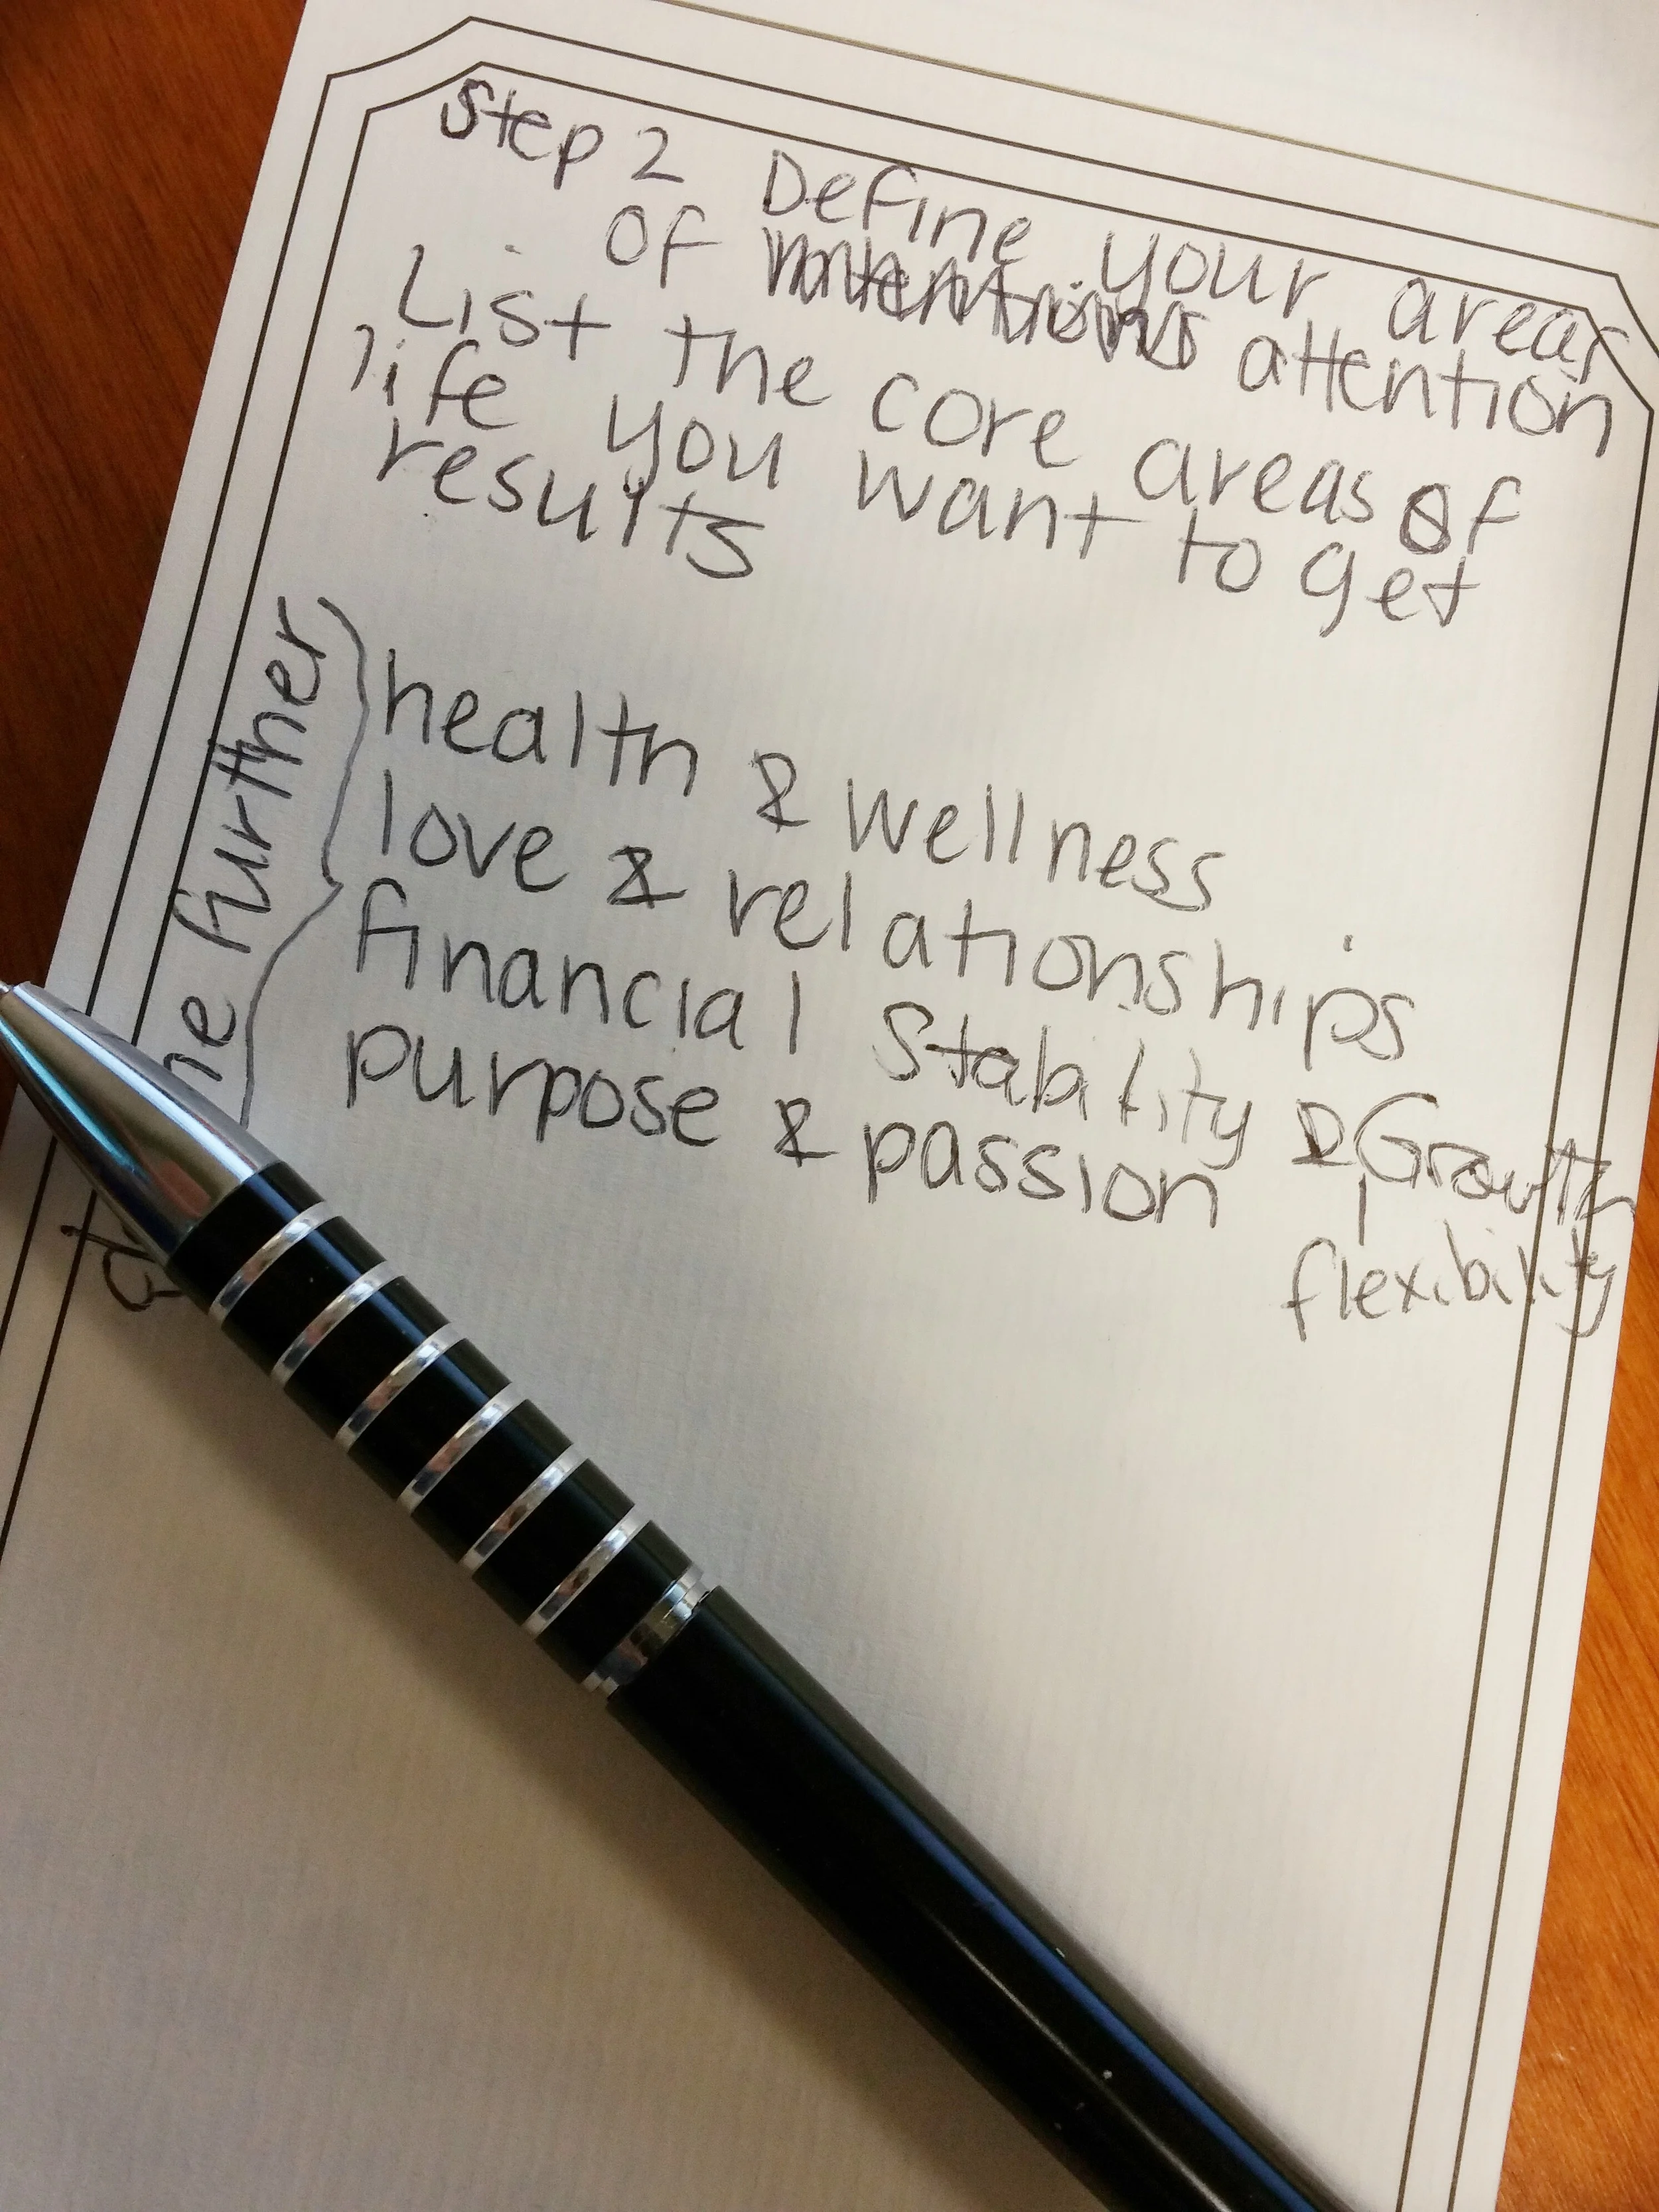 Step 2 Define your areas
of attention
List the core areas of
life you want to get
results
health & wellness
love & relationships
financial stability & Growth
flexibility
purpose & passion
further